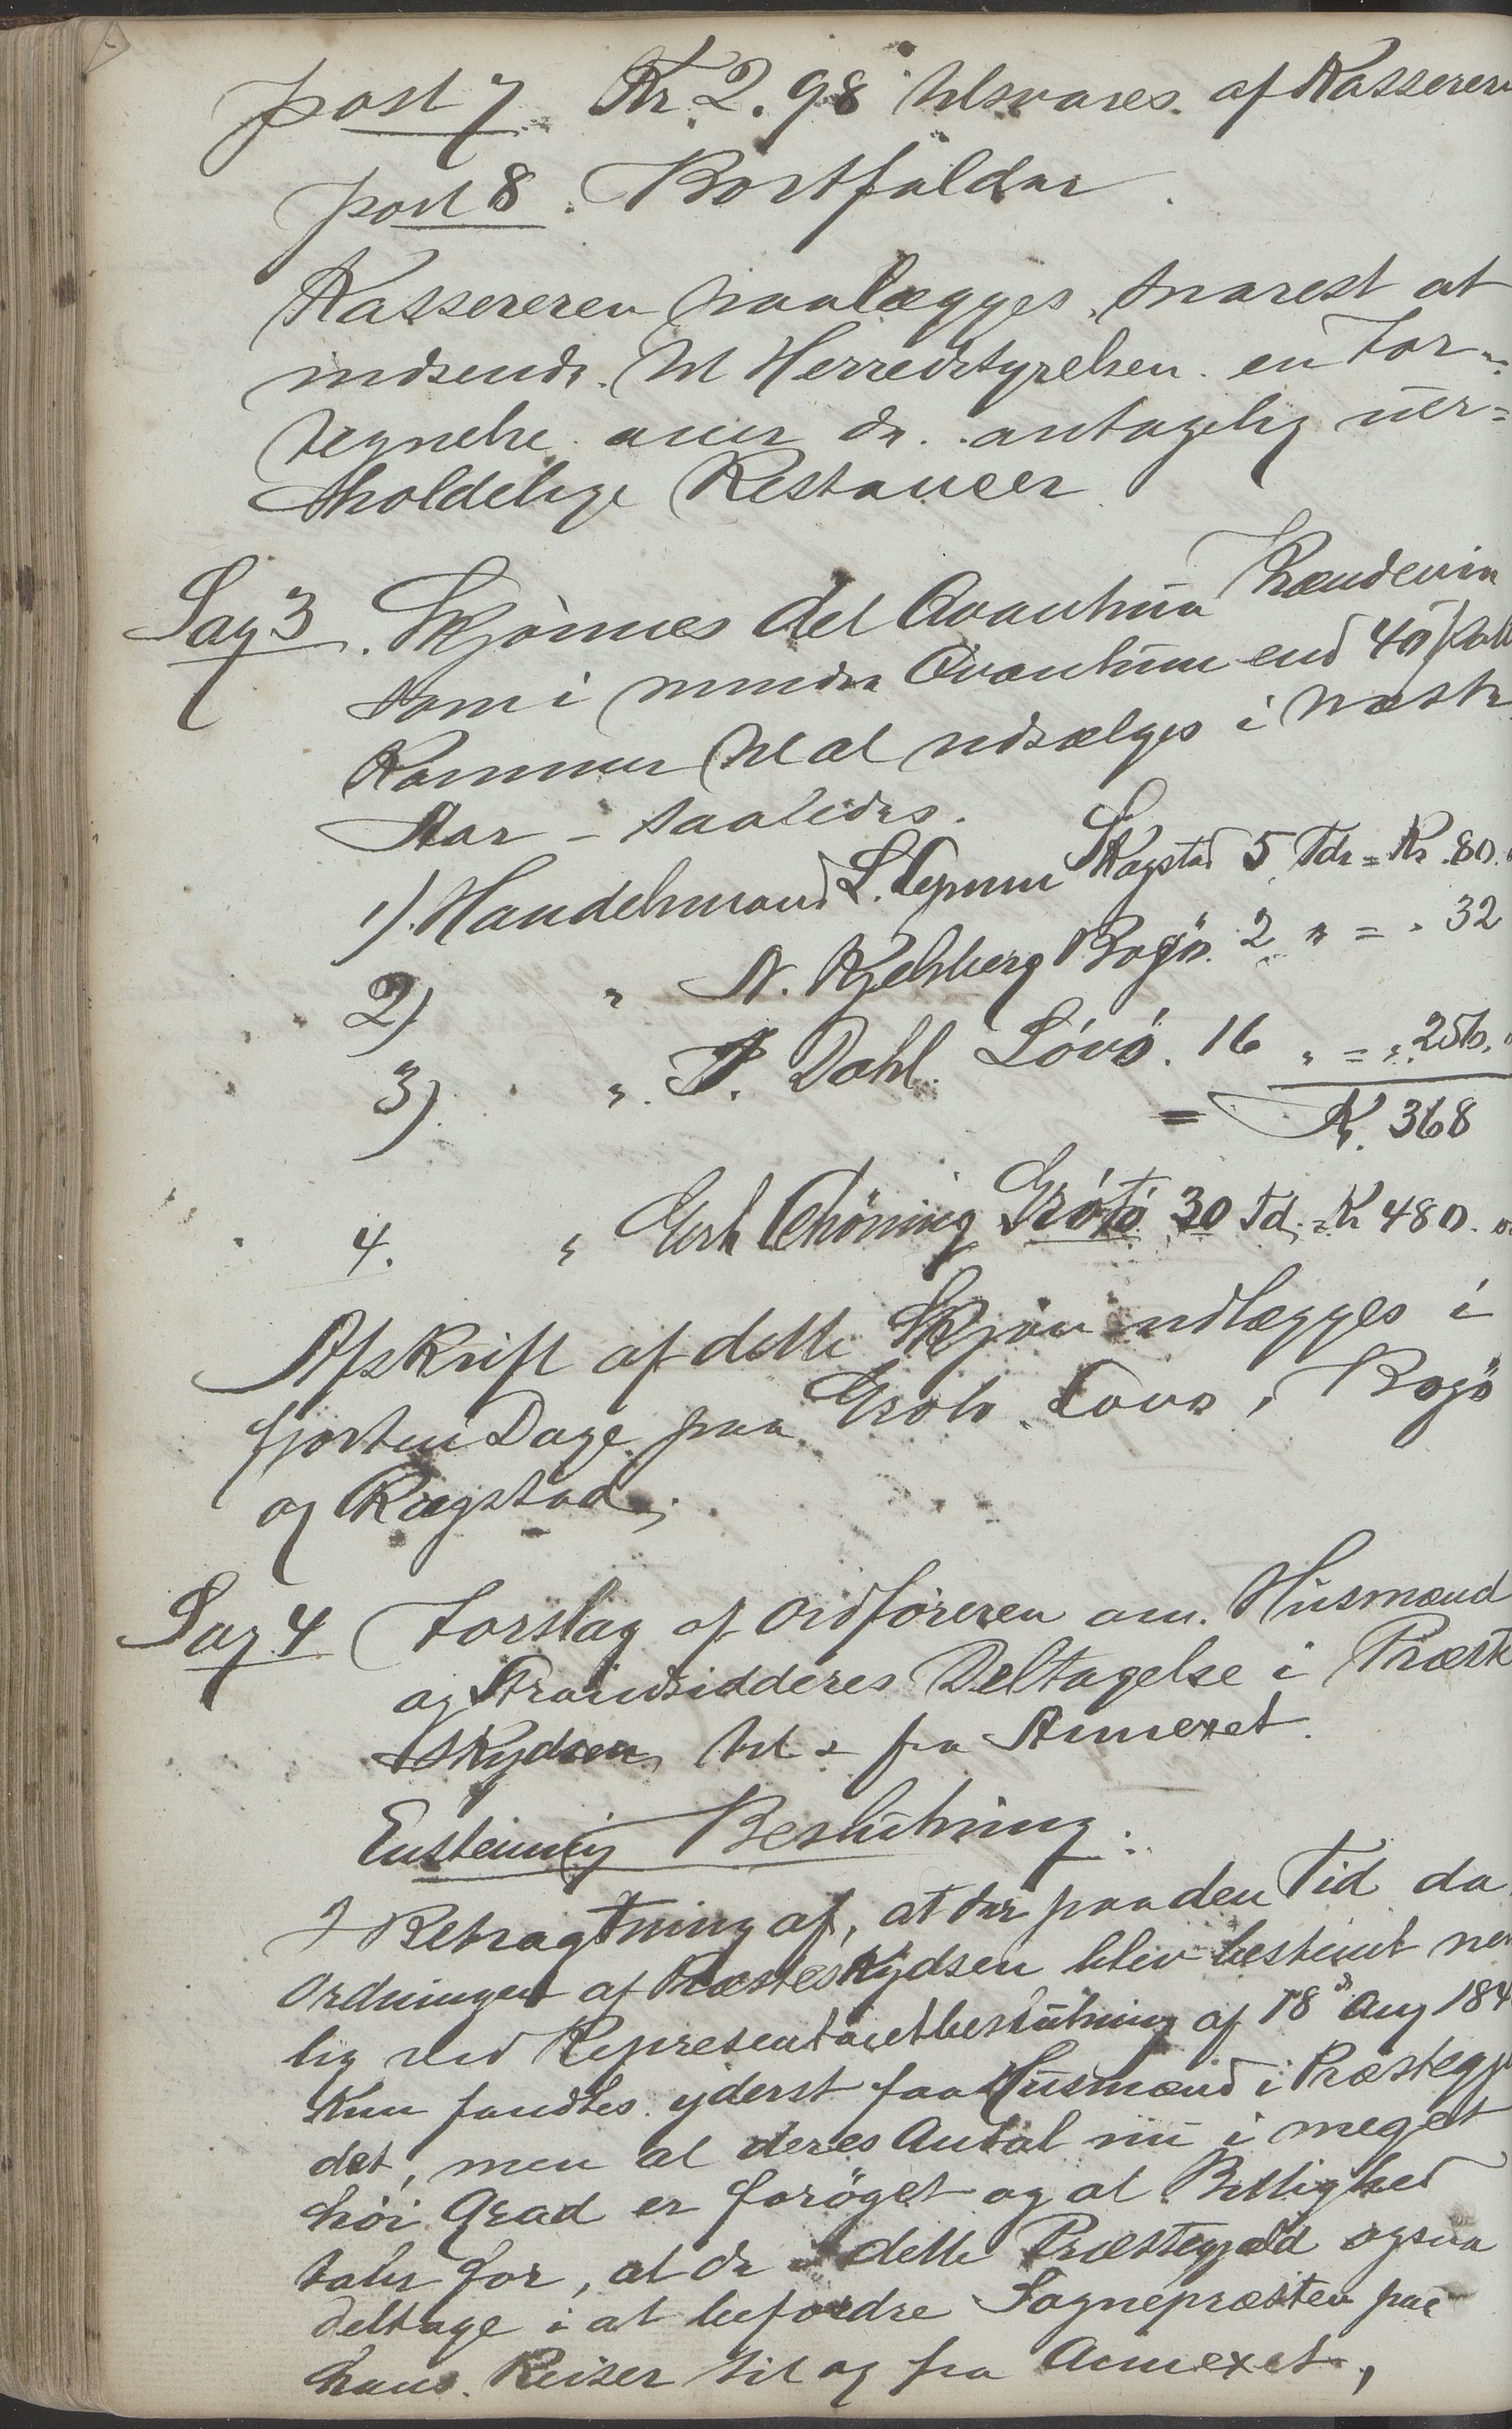 post 7 Kr 2.98 tilsvares af Kassereren
post 8. Bortfalder.
Kassereren paalægges snarest at
indsende til Herredstyrelsen en For-
tegnelse over de antagelig uer-
holdelige Restancer
Sag 3. Skjönnes det Qvantum Brændevin
som i mindre Qvantum end 40 Pott
Kommer til at udsælges i næste
Aar – saaledes.
1). Handelsmand L. Skagstad 5 Tdr = Kr. 80.
2) " N. Kjelsberg Bogö. 2 " = " 32
3) " P. Dahl Lövö. 16 " = " 256.
= Kr. 368
4. " Gerh Schöning Grötö 30 Td. = Kr 480.
Afskrift af dette Skjön udlægges i
fjorten Dage paa Grötö, Lövö, Bogö
og Skagstad.
Sag 4 Forslag af Ordföreren om Husmænd
og Strandsidderes Deltagelse i Præste
skydsen til & fra Annexet.
Enstemmig Beslutning.
I Betragtning af, at der paa den Tid da
Ordningen af Præsteskydsen blev bestemt nem
lig ved Representantbeslutning af 18de Aug 184
Kun fandtes yderst faa Husmænd i Præstegjæl
det, men at deres Antal nu i meget
höi Grad er foröget og at Billighed
taler for, at de i dette Præstegjæld ogsaa
deltage i at befordre Sognepræsten paa
hans Reiser til og fra Annexet,